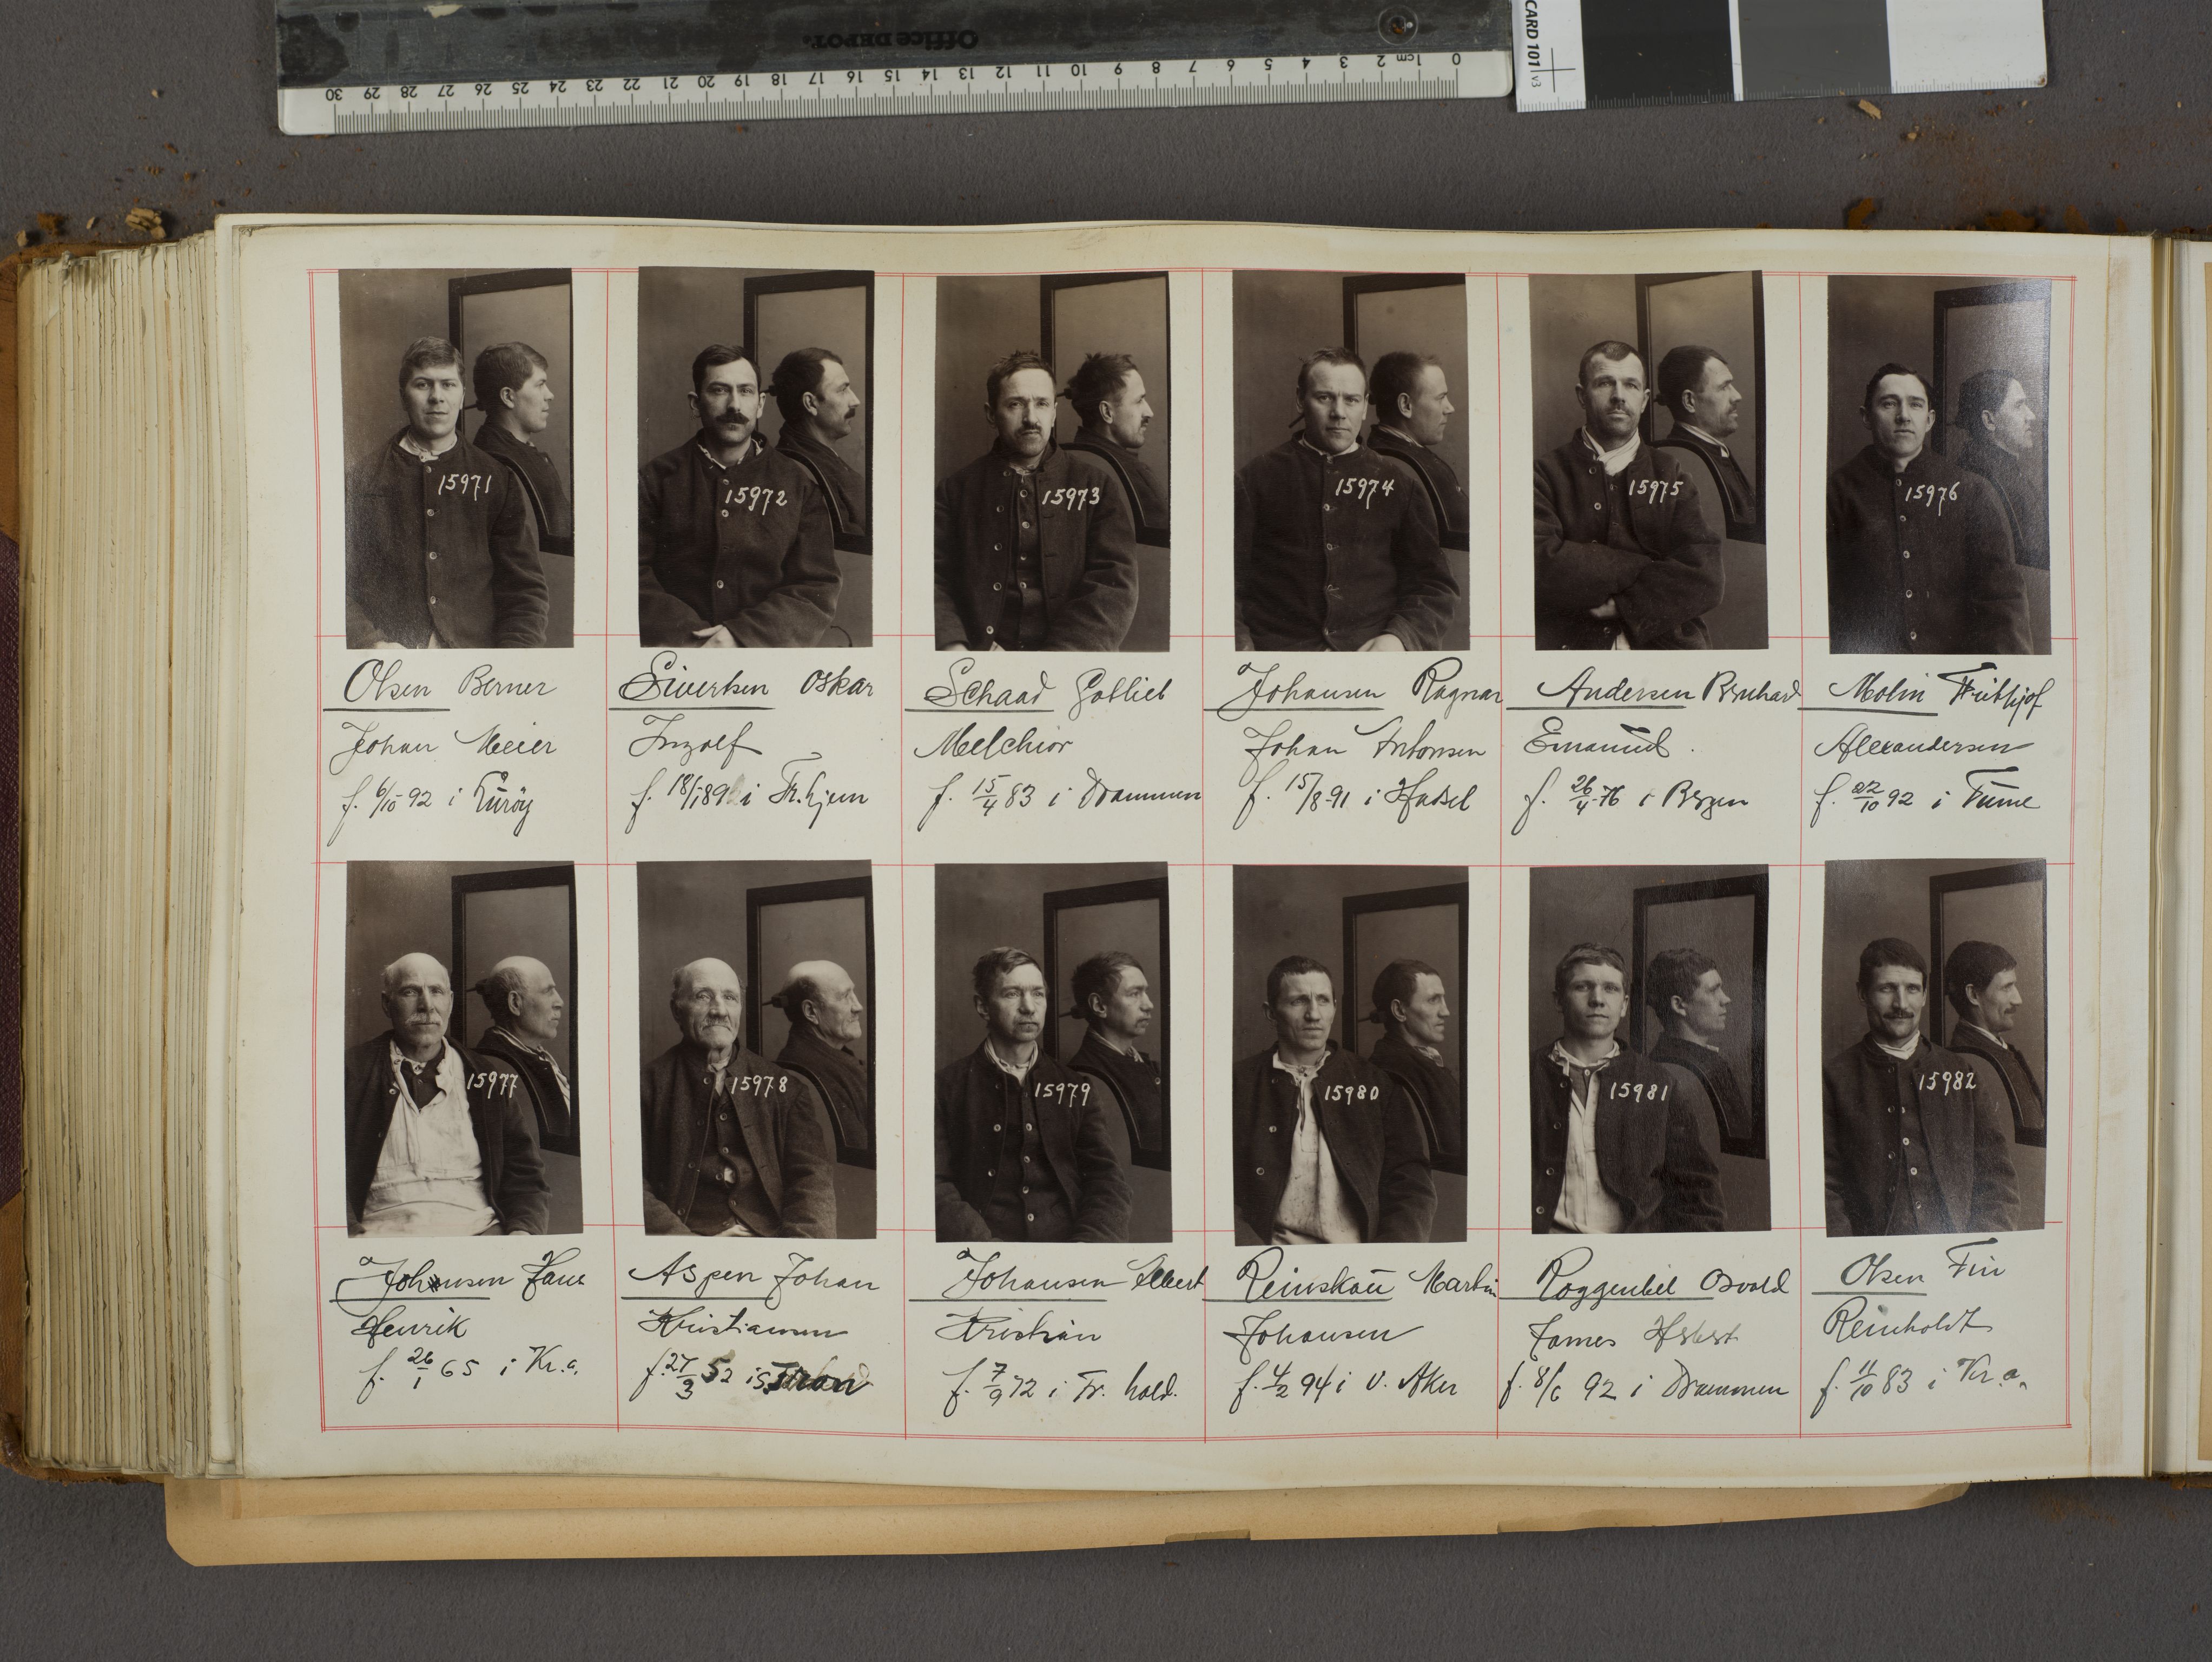 Office DEPOT.
30 29 28 27 26 25 24 23 22 21 20 19 18 17 16 15 14 13 12 11 10 9 8 7 6 5 4 3 2 1cm 0
CARD 101 v3
15971
15972
15973
15974
15975
15976
Olsen Berner
Johan Meier
f. 6/10 92 i Lurøy
Sivertsen Oskar
Ingolf
f. 18/1 89 i Tr.hjem
Schaad Gotlieb
Melchior
f. 15/4 83 i Drammen
Johansen Ragnar
Johan Antonsen
f. 15/8-91 i Hadsel
Andersen Bernhard
Emanuel.
f. 26/4-76 i Bergen
Molin Frithjof
Alexandersen
f. 22/10 92 i
15977
15978
15979
15980
15981
15982
Johansen Hans
Henrik
f. 26/1 65 i Kr.a.
Aspen Johan
Kristiansen
f. 27/3 52 i
Johansen Albert
Kristian
f. 7/9 72 i Fr. hald.
Reinskau Martin
Johansen
f. 4/2 94 i V. Aker
Roggenbil Osvald
James
f. 8/6 92 i Drammen
Olsen Fin
Reinholdt
f. 11/10 83 i Kr.a.